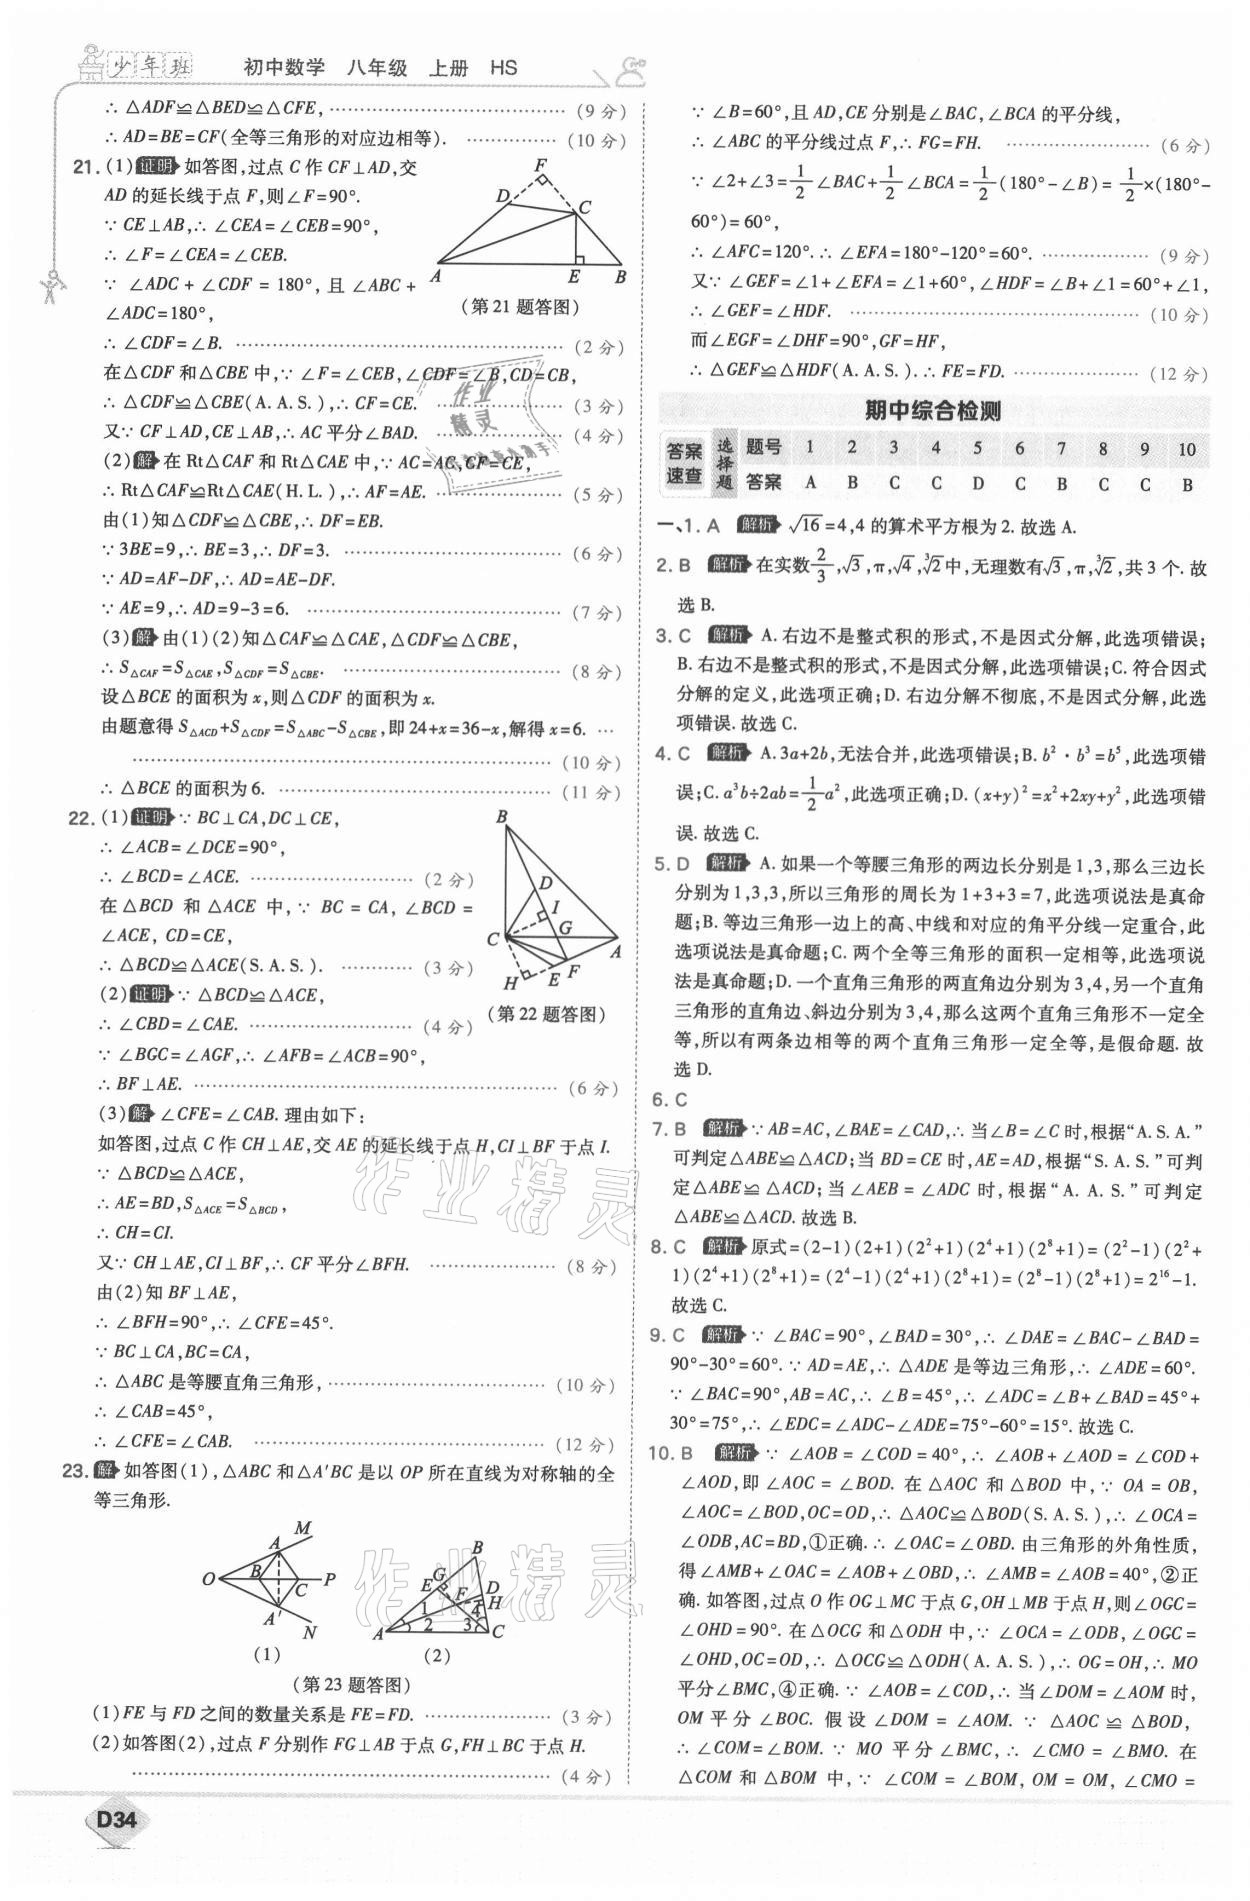 少年班 初中数学 八年级 上册 HS
∴ △ADF≌△BED≌△CFE, (9 分)
∴ AD=BE=CF(全等三角形的对应边相等). (10 分)
21. (1) 证明 如答图,过点 C 作 CF⊥AD,交
AD 的延长线于点 F,则∠F=90°.
∵ CE⊥AB,∴ ∠CEA=∠CEB=90°,
∴ ∠F=∠CEA=∠CEB.
∵ ∠ADC + ∠CDF = 180°, 且 ∠ABC +
∠ADC=180°,
F D C A E B
(第 21 题答图)
∴ ∠CDF=∠B. (2 分)
在△CDF 和△CBE 中,∵ ∠F=∠CEB,∠CDF=∠B,CD=CB,
∴ △CDF≌△CBE(A. A. S. ),∴ CF=CE. (3 分)
又∵ CF⊥AD,CE⊥AB,∴ AC 平分∠BAD. (4 分)
(2) 解 在 Rt△CAF 和 Rt△CAE 中,∵ AC=AC,CF=CE,
∴ Rt△CAF≌Rt△CAE(H. L. ),∴ AF=AE. (5 分)
由(1)知△CDF≌△CBE,∴ DF=EB.
∵ 3BE=9,∴ BE=3,∴ DF=3. (6 分)
∵ AD=AF-DF,∴ AD=AE-DF.
∵ AE=9,∴ AD=9-3=6. (7 分)
(3) 解 由(1)(2)知△CAF≌△CAE,△CDF≌△CBE,
∴ S△CAF=S△CAE,S△CDF=S△CBE. (8 分)
设△BCE 的面积为 x,则△CDF 的面积为 x.
由题意得 S△ACD+S△CDF=S△ABC-S△CBE,即 24+x=36-x,解得 x=6. …
(10 分)
∴ △BCE 的面积为 6. (11 分)
22. (1) 证明 ∵ BC⊥CA,DC⊥CE,
∴ ∠ACB=∠DCE=90°,
∴ ∠BCD=∠ACE. (2 分)
在△BCD 和△ACE 中,∵ BC = CA, ∠BCD =
∠ACE, CD=CE,
∴ △BCD≌△ACE(S. A. S. ). (3 分)
(2) 证明 ∵ △BCD≌△ACE,
∴ ∠CBD=∠CAE. (4 分)
B D I G C A H E F
(第 22 题答图)
∵ ∠BGC=∠AGF,∴ ∠AFB=∠ACB=90°,
∴ BF⊥AE. (6 分)
(3) 解 ∠CFE=∠CAB. 理由如下:
如答图,过点 C 作 CH⊥AE,交 AE 的延长线于点 H,CI⊥BF 于点 I.
∵ △BCD≌△ACE,
∴ AE=BD,S△ACE=S△BCD,
∴ CH=CI.
又∵ CH⊥AE,CI⊥BF,∴ CF 平分∠BFH. (8 分)
由(2)知 BF⊥AE,
∴ ∠BFH=90°,∴ ∠CFE=45°.
∵ BC⊥CA,BC=CA,
∴ △ABC 是等腰直角三角形, (10 分)
∴ ∠CAB=45°,
∴ ∠CFE=∠CAB. (12 分)
23. 解 如答图(1),△ABC 和△A′BC 是以 OP 所在直线为对称轴的全
等三角形.
M A O B C P A′ N
(1)
B G E D F H 1 2 3 4 A C
(2)
(第 23 题答图)
(1)FE 与 FD 之间的数量关系是 FE=FD. (3 分)
(2)如答图(2),过点 F 分别作 FG⊥AB 于点 G,FH⊥BC 于点 H.
(4 分)
∵ ∠B=60°,且 AD,CE 分别是∠BAC,∠BCA 的平分线,
∴ ∠ABC 的平分线过点 F,∴ FG=FH. (6 分)
∵ ∠2+∠3=1/2∠BAC+1/2∠BCA=1/2(180°-∠B)=1/2×(180°-
60°)=60°,
∴ ∠AFC=120°. ∴ ∠EFA=180°-120°=60°. (9 分)
又∵ ∠GEF=∠1+∠EFA=∠1+60°,∠HDF=∠B+∠1=60°+∠1,
∴ ∠GEF=∠HDF. (10 分)
而∠EGF=∠DHF=90°,GF=HF,
∴ △GEF≌△HDF(A. A. S. ). ∴ FE=FD. (12 分)
期中综合检测
答案速查 选择题 题号 1 2 3 4 5 6 7 8 9 10
答案 A B C C D C B C C B
一、1. A 解析 √16=4,4 的算术平方根为 2. 故选 A.
2. B 解析 在实数2/3,√3,π,√4,∛2中,无理数有√3,π,∛2,共 3 个. 故
选 B.
3. C 解析 A. 右边不是整式积的形式,不是因式分解,此选项错误;
B. 右边不是整式积的形式,不是因式分解,此选项错误;C. 符合因式
分解的定义,此选项正确;D. 右边分解不彻底,不是因式分解,此选
项错误. 故选 C.
4. C 解析 A. 3a+2b,无法合并,此选项错误;B. b²·b³=b⁵,此选项错
误;C. a³b÷2ab=1/2a²,此选项正确;D. (x+y)²=x²+2xy+y²,此选项错
误. 故选 C.
5. D 解析 A. 如果一个等腰三角形的两边长分别是 1,3,那么三边长
分别为 1,3,3,所以三角形的周长为 1+3+3=7,此选项说法是真命
题;B. 等边三角形一边上的高、中线和对应的角平分线一定重合,此
选项说法是真命题;C. 两个全等三角形的面积一定相等,此选项说
法是真命题;D. 一个直角三角形的两直角边分别为 3,4,另一个直角
三角形的直角边、斜边分别为 3,4,那么这两个直角三角形不一定全
等,所以有两条边相等的两个直角三角形一定全等,是假命题. 故
选 D.
6. C
7. B 解析 ∵ AB=AC,∠BAE=∠CAD,∴ 当∠B=∠C 时,根据“A. S. A.”
可判定△ABE≌△ACD;当 BD=CE 时,AE=AD,根据“S. A. S.”可判
定△ABE≌△ACD;当∠AEB=∠ADC 时,根据“A. A. S.”可判定
△ABE≌△ACD. 故选 B.
8. C 解析 原式=(2-1)(2+1)(2²+1)(2⁴+1)(2⁸+1)=(2²-1)(2²+
1)(2⁴+1)(2⁸+1)=(2⁴-1)(2⁴+1)(2⁸+1)=(2⁸-1)(2⁸+1)=2¹⁶-1.
故选 C.
9. C 解析 ∵ ∠BAC=90°,∠BAD=30°,∴ ∠DAE=∠BAC-∠BAD=
90°-30°=60°. ∵ AD=AE,∴ △ADE 是等边三角形,∴ ∠ADE=60°.
∵ ∠BAC=90°,AB=AC,∴ ∠B=45°,∴ ∠ADC=∠B+∠BAD=45°+
30°=75°,∴ ∠EDC=∠ADC-∠ADE=75°-60°=15°. 故选 C.
10. B 解析 ∵ ∠AOB=∠COD=40°,∴ ∠AOB+∠AOD=∠COD+
∠AOD,即 ∠AOC=∠BOD. 在△AOC 和△BOD 中,∵ OA=OB,
∠AOC=∠BOD,OC=OD,∴ △AOC≌△BOD(S. A. S. ),∴ ∠OCA=
∠ODB,AC=BD,①正确. ∴ ∠OAC=∠OBD. 由三角形的外角性质,
得∠AMB+∠OAC=∠AOB+∠OBD,∴ ∠AMB=∠AOB=40°,②正
确. 如答图,过点 O 作 OG⊥MC 于点 G,OH⊥MB 于点 H,则∠OGC=
∠OHD=90°. 在△OCG 和△ODH 中,∵ ∠OCA=∠ODB,∠OGC=
∠OHD,OC=OD,∴ △OCG≌△ODH(A. A. S. ),∴ OG=OH,∴ MO
平分∠BMC,④正确. ∵ ∠AOB=∠COD,∴ 当∠DOM=∠AOM 时,
OM 平分∠BOC. 假设∠DOM=∠AOM. ∵ △AOC≌△BOD,
∴ ∠COM=∠BOM. ∵ MO 平分∠BMC,∴ ∠CMO=∠BMO. 在
△COM 和△BOM 中,∵ ∠COM=∠BOM, OM=OM, ∠CMO=
D34
作业精灵
作业精灵
作业精灵